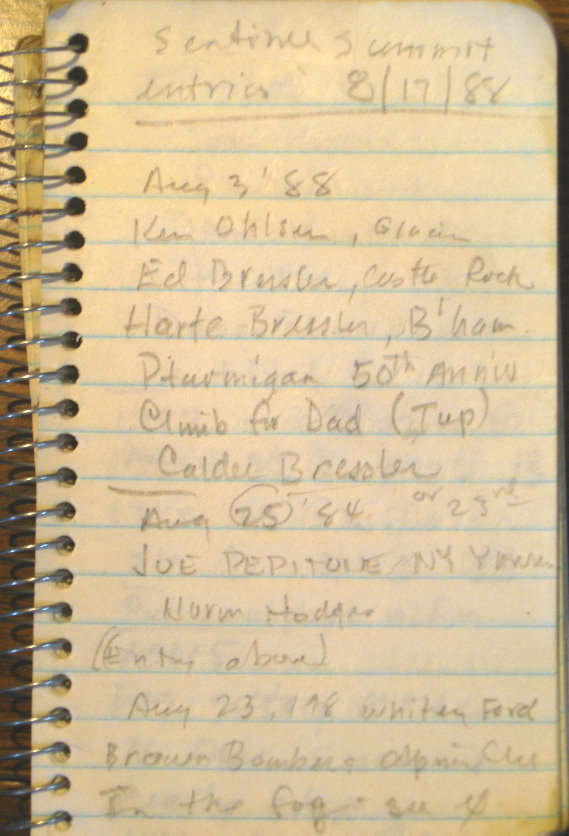 Sentinel Summit
entries 8/17/88
Aug 3 '88
Ken Ohlsen, Glacier
Ed Bressler, Castle Rock
Harte Bressler, B'ham.
Ptarmigan 50th Anniv
Climb for Dad (Tup)
Calder Bressler
Aug 25 '84 or 23rd
JOE PEPITONE NY Yankees
Norm Hodges
(Entry above)
Aug 23, 198 Whitey Ford
Brown Bombers Alpine Club
In the fog - see